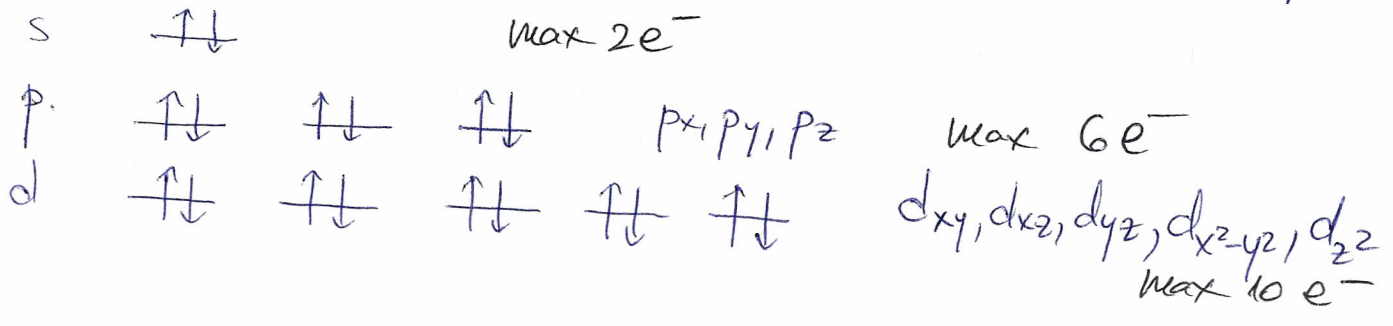 s ↑↓ max 2e⁻
p. ↑↓ ↑↓ ↑↓ px, py, pz max 6e⁻
d ↑↓ ↑↓ ↑↓ ↑↓ ↑↓ dxy, dxz, dyz, dx²-y², dz²
max 10 e⁻